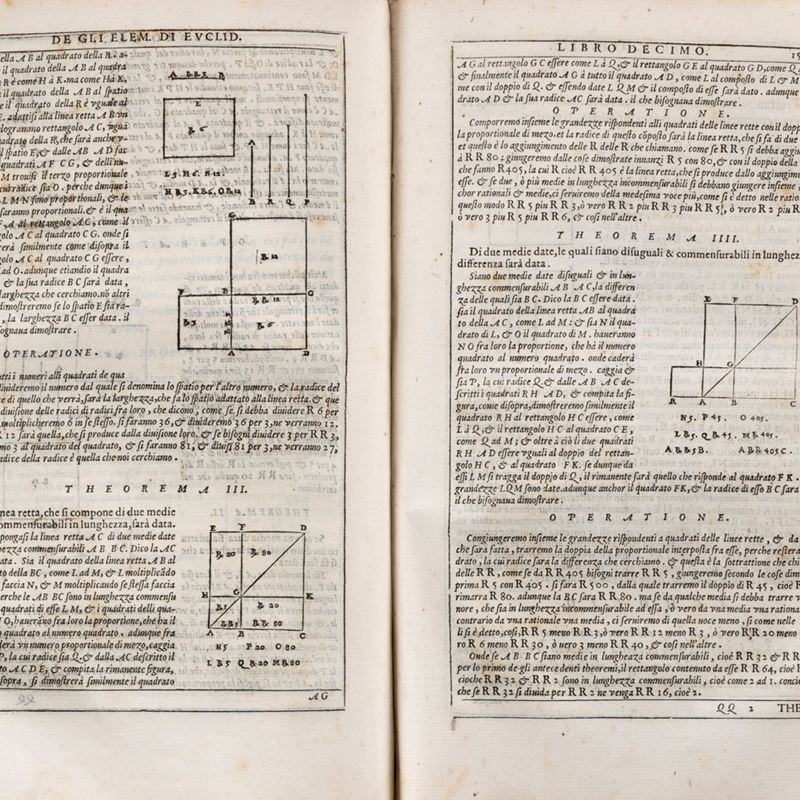 DE GLI ELEM. DI EVCLID.
ella A B al quadrato della R. a-
il quadrato della A B al quadra
R è come H à K. ma come H à K,
il quadrato della A B al spatio
e il quadrato della R è vguale al
E. adattisi alla linea retta A B vn
logrammo rettangolo A C, vgua
adrato della R, che sarà anchor
l spatio E, & dalle A B A D fac
quadrati A F C G, & dell'nu-
M trouisi il terzo proportionale
cui radice sia O. perche dunque i
L M N sono proportionali, & le
saranno proportionali. & è il qua
F A al rettangolo A C, come il
golo A C al quadrato C G. onde si
rerà similmente come disopra il
golo A C al quadrato C G essere,
ad O. adunque etiandio il quadra
& la sua radice B C sarà data,
larghezza che cerchiamo. nõ altri
dimostreremo se lo spatio E sia ra-
, la larghezza B C esser data. il
sognaua dimostrare.
OPERATIONE.
utti i numeri alli quadrati de qua
diuideremo il numero dal quale si denomina lo spatio per l'altro numero, & la radice del
e di quello che verrà, sarà la larghezza, che fa lo spatio adattato alla linea retta. & que
diuisione delle radici di radici fra loro, che dicono, come se si debba diuidere R 6 per
moltiplicheremo 6 in se stesso. si faranno 36, & diuideremo 36 per 3, ne verranno 12.
R 12 sarà quella, che si produce dalla diuisione loro. & se bisogni diuidere 3 per RR 3,
mo 3 al quadrato del quadrato, & si faranno 81, & diuisi 81 per 3, ne verranno 27,
adice della radice è quella che noi cerchiamo.
THEOREMA III.
nea retta, che si compone di due medie
ommensurabili in lunghezza, sarà data.
pongasi la linea retta A C di due medie date
hezza commensurabili A B B C. Dico la A C
data. Sia il quadrato della linea retta A B al
to della BC, come L ad M, & L moltiplicãdo
faccia N, & M moltiplicando se stessa faccia
erche le AB BC sono in lunghezza commensu
quadrati di esse L M, & i quadrati delli qua-
O, haueranno fra loro la proportione, che ha il
quadrato al numero quadrato, adunque fra
derà vn numero proportionale di mezo, caggia
P, la cui radice sia Q. & dalla AC descritto il
to A C D E, & compita la rimanente figura,
sopra, si dimostrerà similmente il quadrato
N 5 P 20 O 80
L R 5 Q R 20 M R 80
A G
LIBRO DECIMO.
A G al rettangolo G C essere come L à Q, & il rettangolo G E al quadrato G D, come Q
& finalmente il quadrato A G à tutto il quadrato A D, come L al composto di L & M
me con il doppio di Q. & essendo date L Q M & il composto di esse sarà dato. adunque
drato A D & la sua radice A C sarà data. il che bisognaua dimostrare.
OPERATIONE.
Comporremo insieme le grandezze rispondenti alli quadrati delle linee rette con il dopp
la proportionale di mezo. et la radice di questo cõposto sarà la linea retta, che si fa di due
et questo è lo aggiungimento delle R delle R che chiamano. come se RR 5 si debba aggiu
à RR 80; giungeremo dalle cose dimostrate innanzi R 5 con 80, & con il doppio della
che fanno R 405, la cui R cioè RR 405 è la linea retta, che si produce dallo aggiungimento
esse. & se due, ò più medie in lunghezza incommensurabili si debbano giungere insieme
chor rationali & medie, ci seruiremo della medesima voce più, come si è detto nelle ratio
questo modo RR 5 più RR 3, ò vero RR 2 più RR 3 più RR 5, ò vero R 2 più R
ò vero 3 più R 5 più RR 6, & così nell'altre.
THEOREMA IIII.
Di due medie date, le quali siano disuguali & commensurabili in lunghez
differenza sarà data.
Siano due medie date disuguali & in lun-
ghezza commensurabili A B A C, la differen
za delle quali sia B C. Dico la B C essere data.
sia il quadrato della linea retta A B al quadra
to della A C, come L ad M: & sia N il qua-
drato di L, & O il quadrato di M. haueranno
N O fra loro la proportione, che ha il numero
quadrato al numero quadrato. onde caderà
fra loro vn proportionale di mezo. caggia &
sia P, la cui radice Q. & dalle A B A C de-
scritti i quadrati R H A D, & compita la fi-
gura, come disopra, dimostreremo similmente il
quadrato R H al rettangolo H C essere, come
L à Q, & il rettangolo H C al quadrato C E,
come Q ad M; & oltre à ciò li due quadrati
R H A D essere vguali al doppio del rettan-
golo H C, & al quadrato F K. se dunque da
essi L M si tragga il doppio di Q, il rimanente sarà quello che risponde al quadrato F K.
grandezze L Q M sono date. adunque anchor il quadrato F K, & la radice di esso B C sarà
il che bisognaua dimostrare.
N 5. P 45. O 405.
L R 5. Q R 45. M R 405.
A B R R 5 B. A B R R 405 C.
OPERATIONE.
Congiungeremo insieme le grandezze rispondenti a quadrati delle linee rette, & da
che sarà fatta, trarremo la doppia della proportionale interposta fra esse, perche resterà
drato, la cui radice sarà la differenza che cerchiamo. & questa è la sottrattione che chi
delle RR, come se da RR 405 bisogni trarre RR 5, giungeremo secondo le cose dim
prima R 5 con R 405, si farà R 500, dalla quale trarremo il doppio di R 45, cioè
rimarrà R 80. adunque la BC sarà RR 80. ma se da qualche media si debba trarre v
nore, che sia in lunghezza incommensurabile ad essa, ò vero da vna media vna ration
contrario da vna rationale vna media, ci seruiremo di quella uoce meno, sì come nelle
li si è detto, così, RR 5 meno RR 3, ò vero RR 12 meno R 3, ò vero R R 20 meno
ro R 6 meno RR 30, ò vero 3 meno RR 40, & così nell'altre.
Onde se A B B C siano medie in lunghezza commensurabili, cioè RR 32 & RR
per lo primo de gli antecedenti theoremi, il rettangolo contenuto da esse R R 64, cioè
cioche RR 32 & RR 2 sono in lunghezza commensurabili, cioè come 2 ad 1. concio
che se RR 32 si diuida per RR 2 ne venga RR 16, cioè 2.
QQ 2 THE